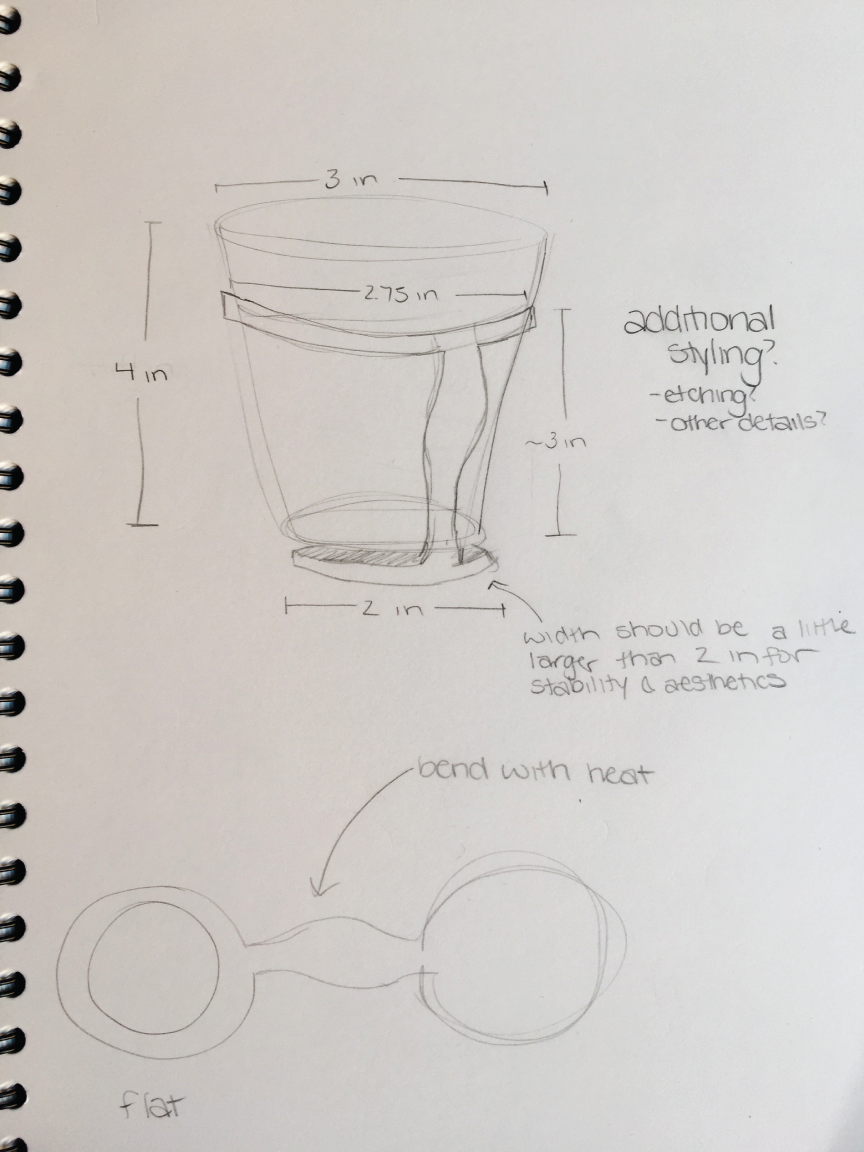 3 in
2.75 in
additional
styling?
-etching?
-other details?
4 in
~3 in
2 in
width should be a little
larger than 2 in for
stability & aesthetics
bend with heat
flat